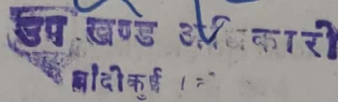 उप खण्ड अधिकारी
बांदीकुई